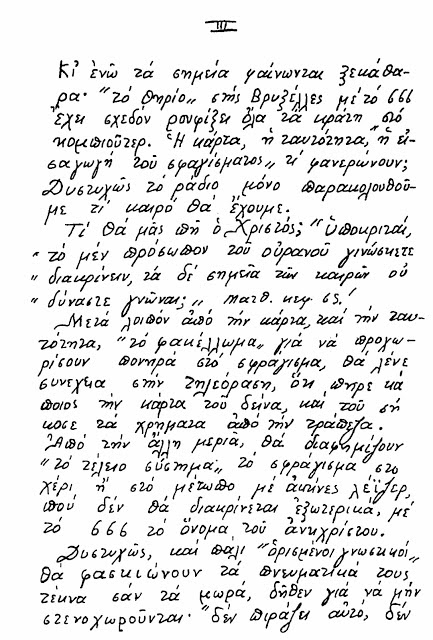 III
Κι' ἐνῶ τά σημεῖα φαίνωνται ξεκάθα-
ρα· "τό θηρίο" στής Βρυξέλλες μέ τό 666
ἔχει σχεδόν ρουφίξει ὅλα τά κράτη στό
κομπιοῦτερ. Ἡ κάρτα, ἡ ταυτότητα, "ἡ εἰ-
σαγωγή τοῦ σφαγίσματος" τί φανερώνουν;
Δυστυχῶς τό ράδιο μόνο παρακολουθοῦ-
με τί καιρό θά ἔχουμε.
Τί θά μᾶς πῆ ὁ Χριστός; "Ὑποκριταί,
" τό μέν πρόσωπον τοῦ οὐρανοῦ γινώσκετε
" διακρίνειν, τά δέ σημεῖα τῶν καιρῶν οὐ
" δύναστε γνῶναι; " Ματθ. κεφ. 
Μετά λοιπόν ἀπό τήν κάρτα, καί τήν ταυ-
τότητα, "τό φακέλλωμα" γιά νά προχω-
ρίσουν πονηρά στό σφράγισμα, θά λένε
συνεχεια στήν τηλεόραση, ὅτι πῆρε κά
ποιος τήν κάρτα τοῦ δείνα, καί τοῦ σή
κωσε τά χρήματα ἀπό τήν τράπεζα.
Ἀπό τήν ἄλλη μεριά, θά διαφημίζουν
"τό τέλειο σύστημα" τό σφράγισμα στο
χέρι ἤ στό μέτωπο μέ ἀκτίνες λέϊζερ,
πού δέν θά διακρίνεται ἐξωτερικά, μέ
τό 666 τό ὄνομα τοῦ ἀντιχρίστου.
Δυστυχῶς, καί πάλι "ὁρισμένοι γνωστικοί"
θά φασκιώνουν τά πνευματικά τους
τέκνα σάν τά μωρά, δῆθεν γιά νά μήν
στενοχωροῦνται· "δέν πιράζει αὐτό, δέν